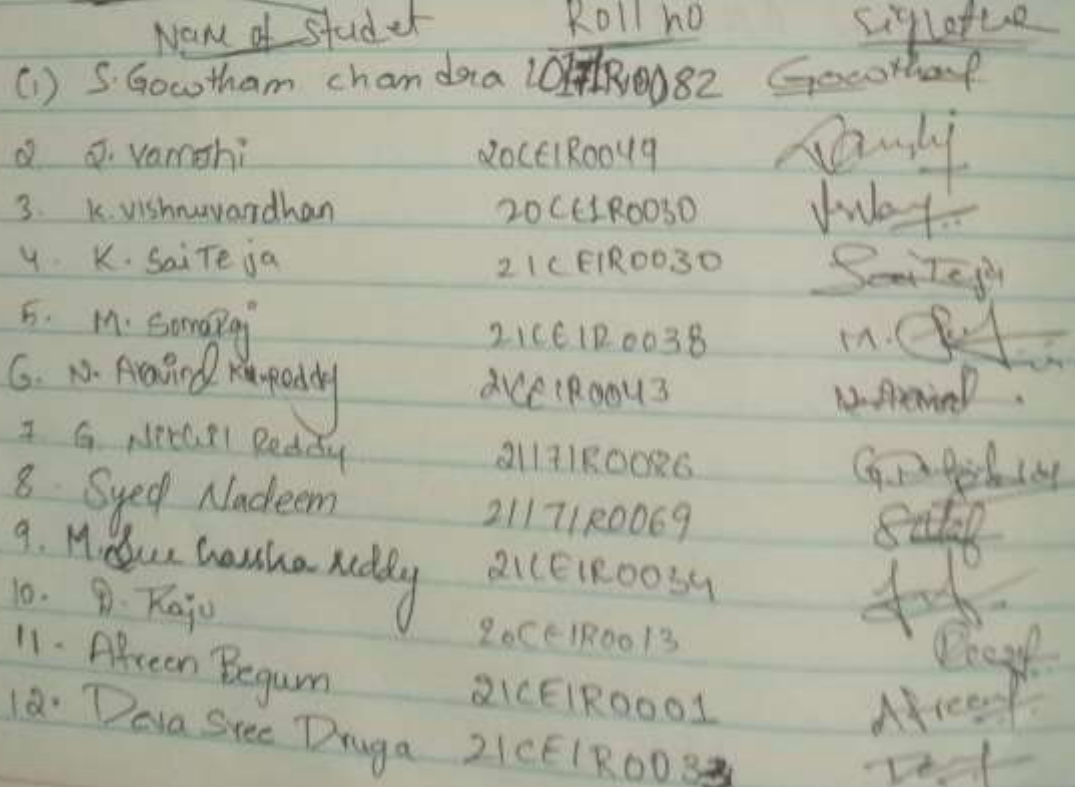 Name of Studet Roll no Signature
(1) S. Gowtham chandra 20171R0082 Gowtham
2 J. vamshi 20CE1R0049 Vamshi
3. K. vishnuvardhan 20CE1R0030
4. K. SaiTeja 21CE1R0030 SaiTeja
5. M. Somaraj 21CE1R0038 M.
6. N. Aravind Reddy 21CE1R0043 N. Aravind
7 G. Nikhil Reddy 21171R0086
8. Syed Nadeem 21171R0069
9. M. Sree harsha reddy 21CE1R0034
10. D. Raju 20CE1R0013
11. Afreen Begum 21CE1R0001 Afreen
12. Deva Sree Druga 21CE1R003